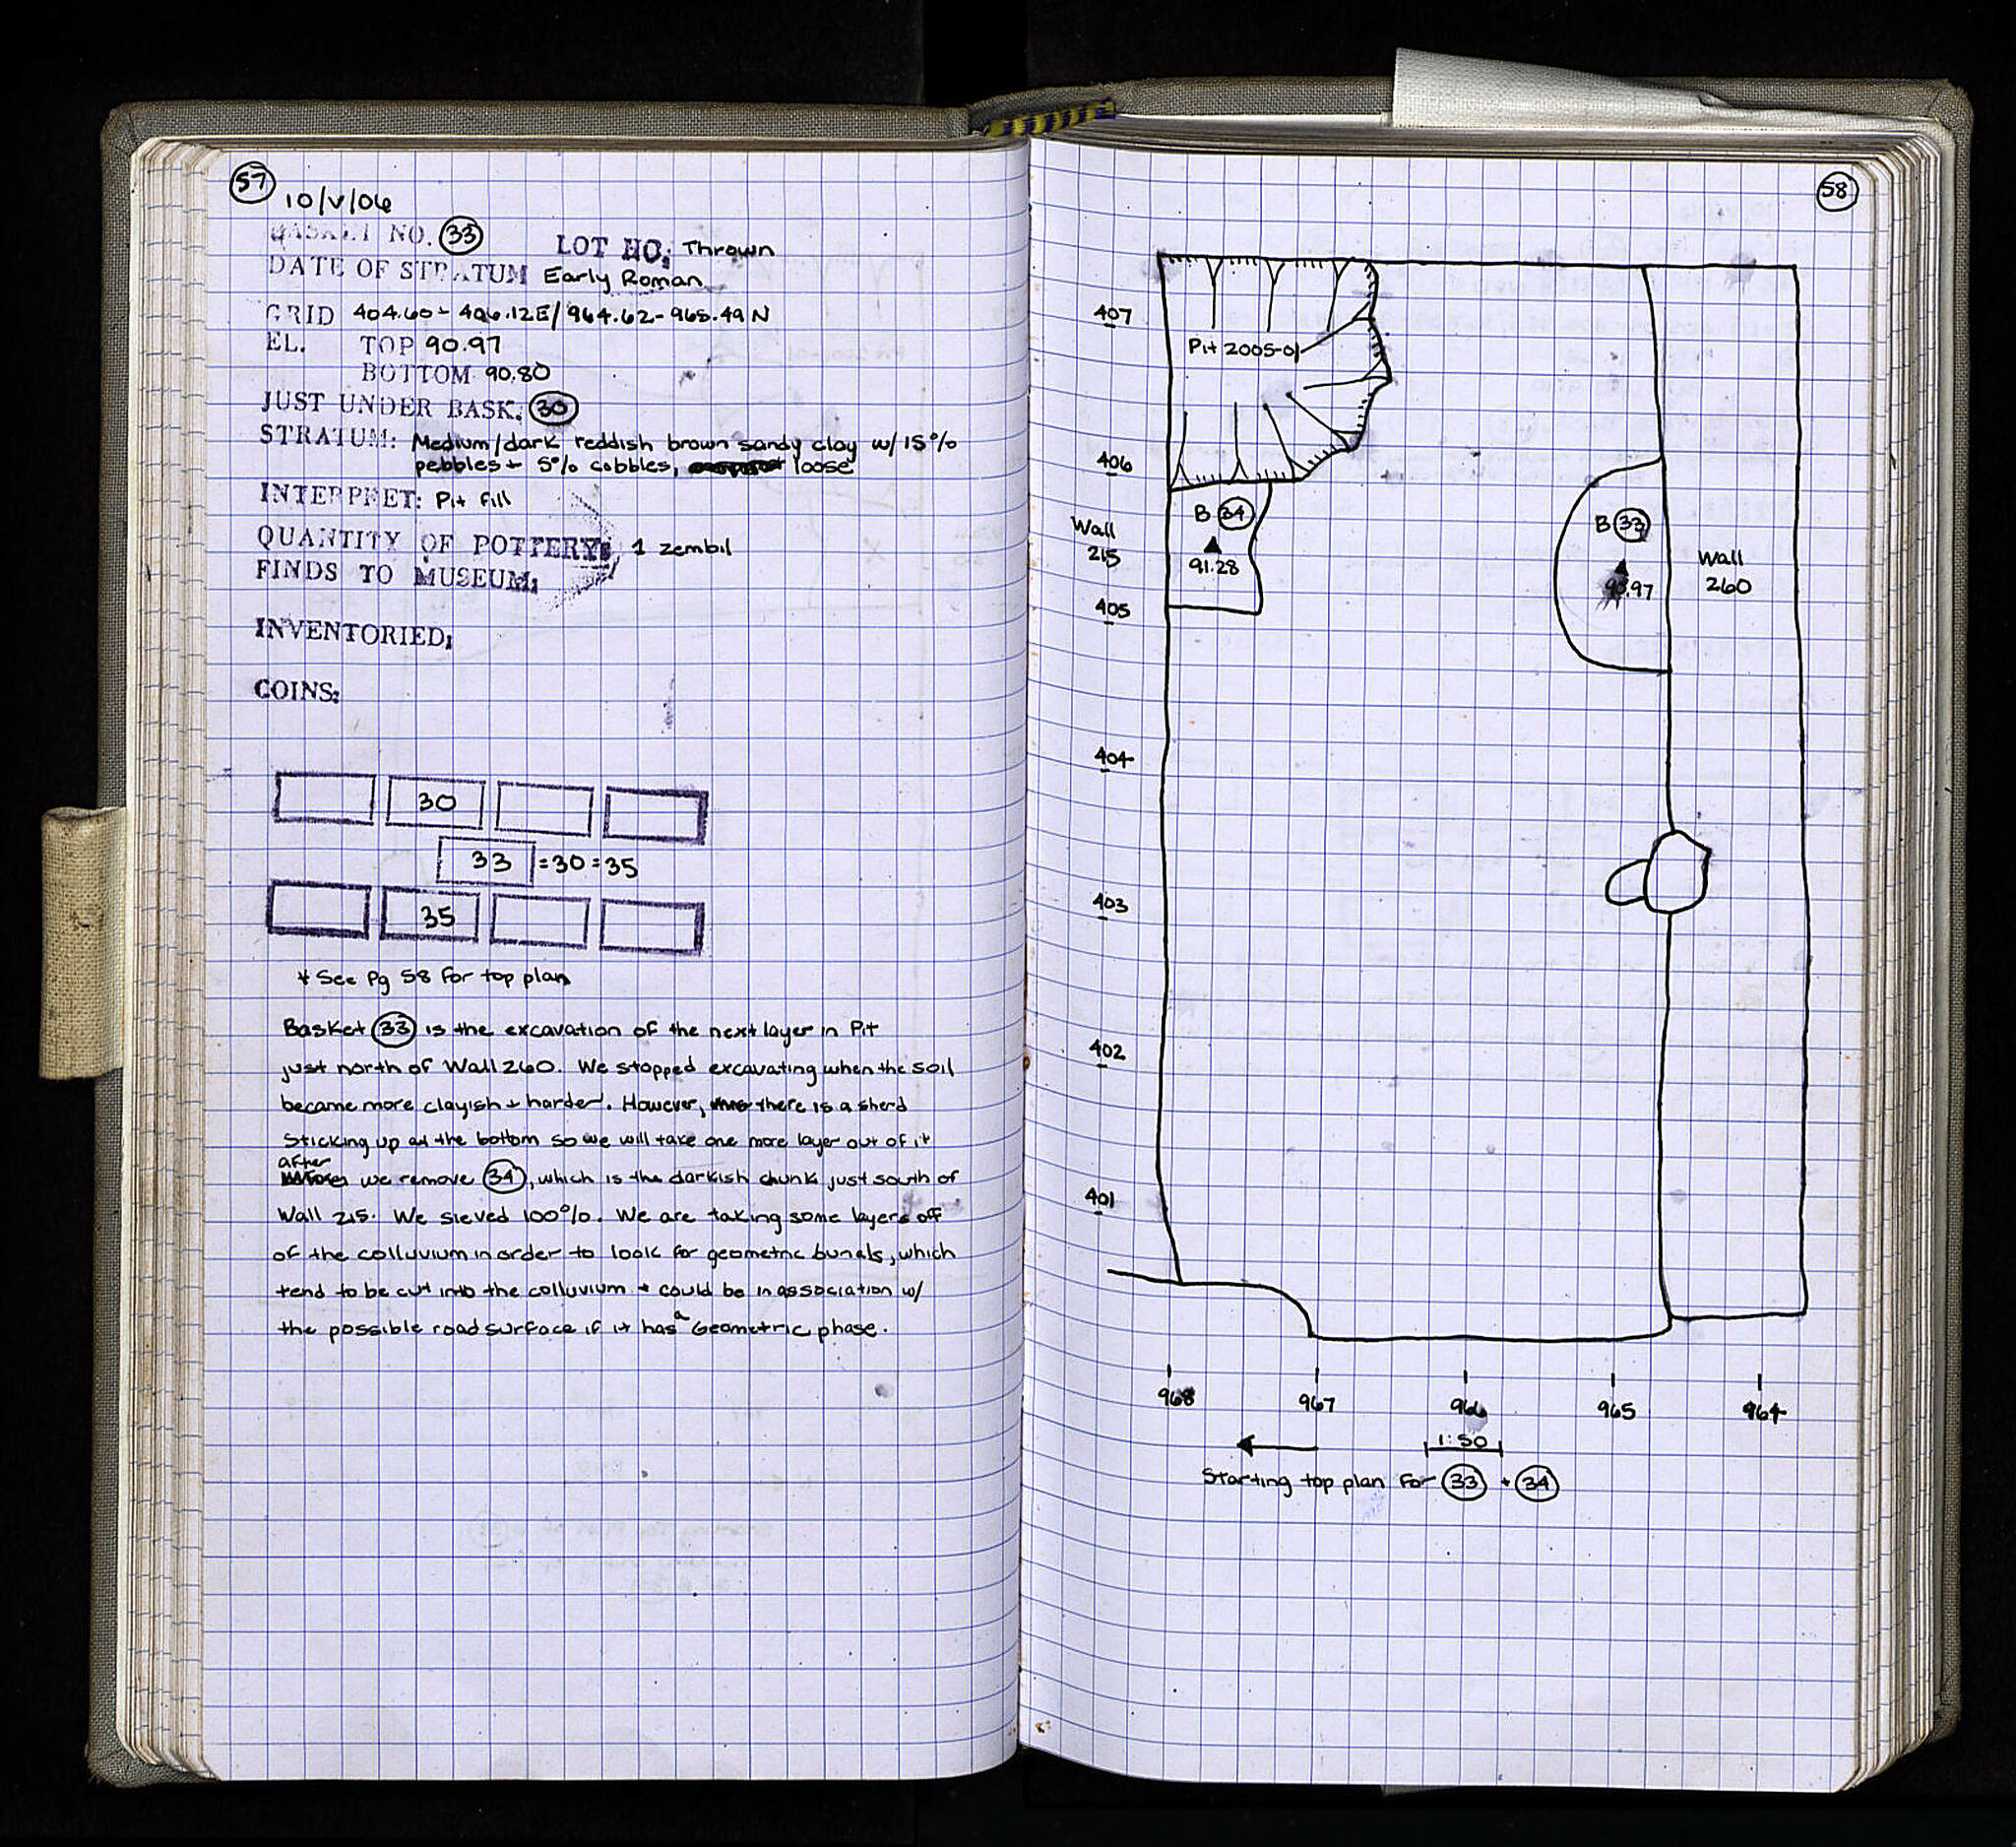 57
10/V/06
BASKET NO. 33 LOT NO: Thrown
DATE OF STRATUM Early Roman
GRID 404.60 - 406.12E / 964.62-965.49N
EL. TOP 90.97
BOTTOM 90.80
JUST UNDER BASK. 30
STRATUM: Medium/dark reddish brown sandy clay w/ 15%
pebbles + 5% cobbles, loose
INTERPRET: Pit fill
QUANTITY OF POTTERY: 1 zembil
FINDS TO MUSEUM:
INVENTORIED:
COINS:
30
33 =30=35
35
* See Pg 58 for top plan
Basket 33 is the excavation of the next layer in Pit
just north of Wall 260. We stopped excavating when the soil
became more clayish + harder. However, there is a sherd
sticking up at the bottom so we will take one more layer out of it
after
we remove 34, which is the darkish chunk just south of
Wall 215. We sieved 100%. We are taking some layers off
of the colluvium in order to look for geometric burials, which
tend to be cut into the colluvium + could be in association w/
the possible road surface if it has a Geometric phase.
58
407
Pit 2005-01
406
B 34
Wall
215
91.28
B 33
90.97
Wall
260
405
404
403
402
401
968 967 966 965 964
1:50
Starting top plan for 33 + 34